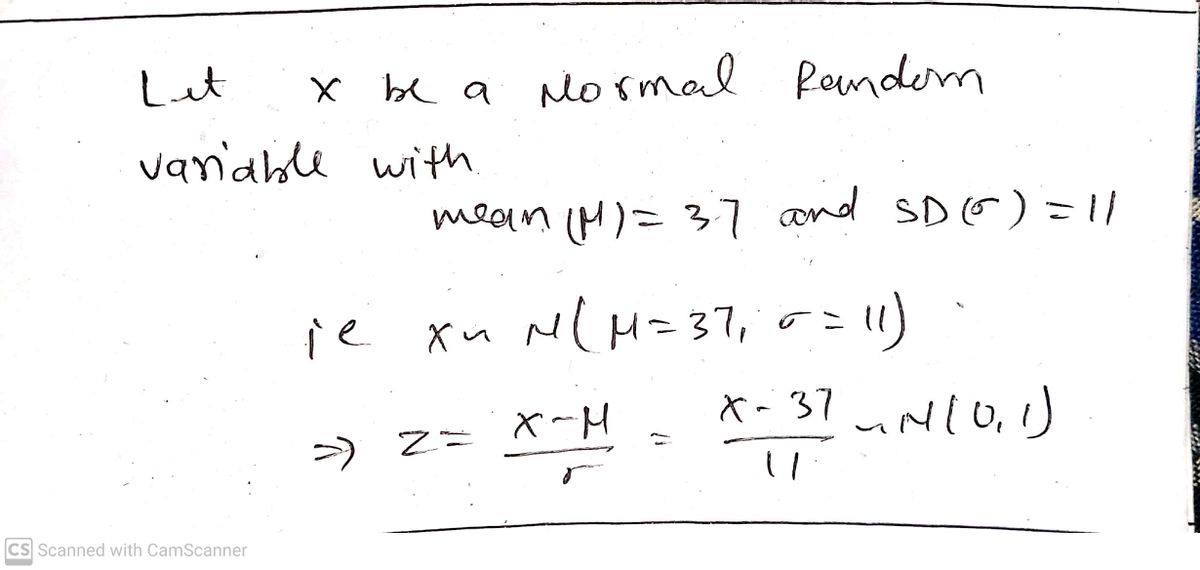 Let x be a Normal Random
variable with
mean (μ) = 37 and SD (σ) = 11
ie x ~ N(μ=37, σ=11)
⇒ z = x-μ/σ = x-37/11 ~ N(0,1)
CS Scanned with CamScanner